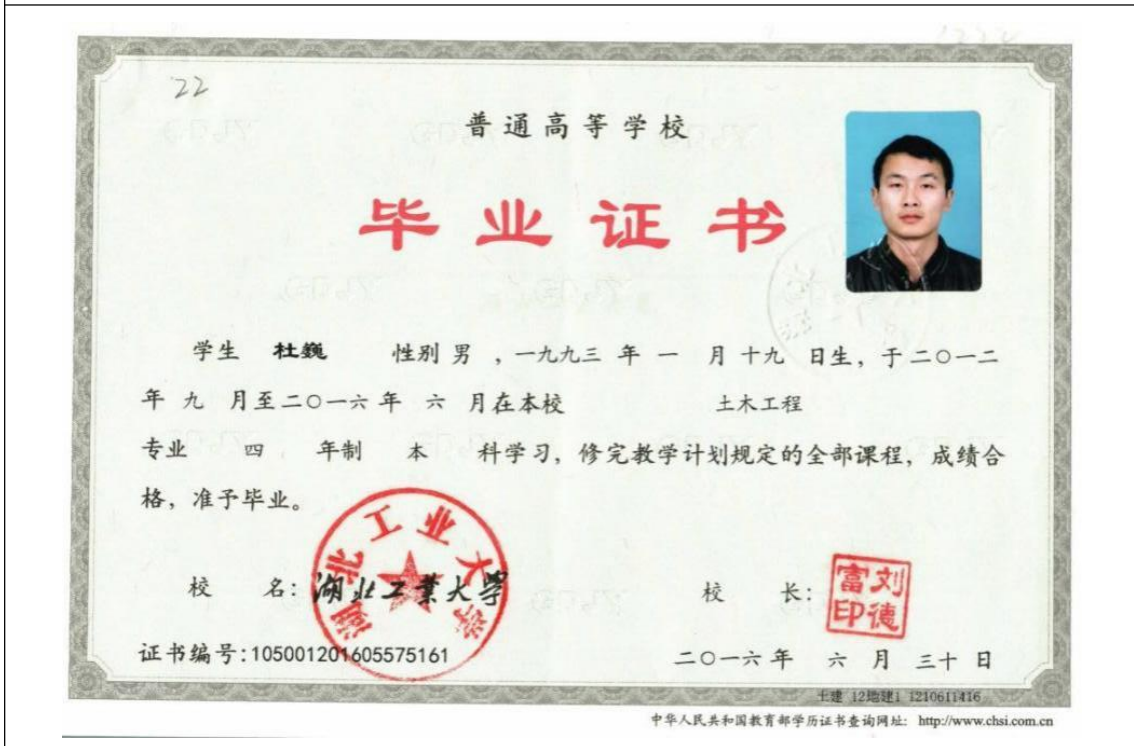 22
普通高等学校
毕业证书
学生 杜巍 性别 男 ，一九九三 年 一 月 十九 日生，于二〇一二
年 九 月至二〇一六 年 六 月在本校 土木工程
专业 四 年制 本 科学习，修完教学计划规定的全部课程，成绩合
格，准予毕业。
湖北工业大学
校 名：湖北工業大學
校 长：
刘德富印
证书编号:105001201605575161
二〇一六 年 六 月 三十 日
土建 12地建1 1210611416
中华人民共和国教育部学历证书查询网址： http://www.chsi.com.cn